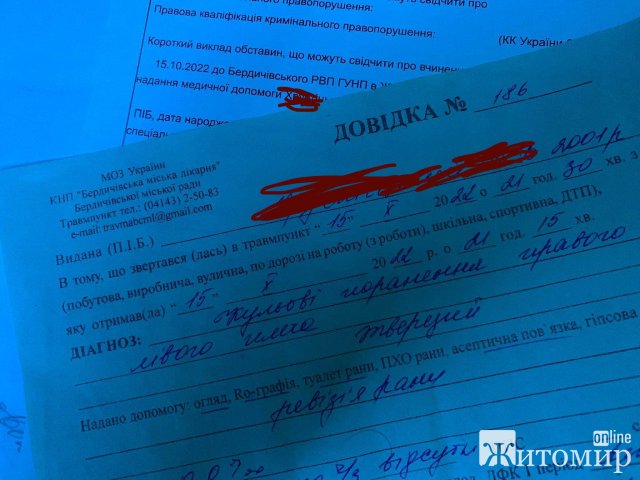 можуть свідчити про
Правова кваліфікація кримінального правопорушення:
(КК України
Короткий виклад обставин, що можуть свідчити про вчинен
15.10.2022 до Бердичівського РВП ГУНП в
надання медичної допомоги
ПІБ, дата народже
спеціаль
ДОВІДКА № 186
МОЗ України
КНП "Бердичівська міська лікарня"
Бердичівської міської ради
Травмпункт тел.: (04143) 2-50-83
e-mail: travmabcml@gmail.com
Видана (П.І.Б.) 2001р
В тому, що звертався (лась) в травмпункт " 15 " X 2022 о 21 год. 30 хв. з
(побутова, виробнича, вулична, по дорозі на роботу (з роботи), шкільна, спортивна, ДТП),
яку отримав(ла) " 15 " X 2022 р. о 21 год. 15 хв.
ДІАГНОЗ: кульові поранення правого
лівого плеча
Надано допомогу: огляд, Ro-графія, туалет рани, ПХО рани, асептична пов`язка, гіпсова
ревізія рани
відсутн
ЛФК і період
Житомир
online